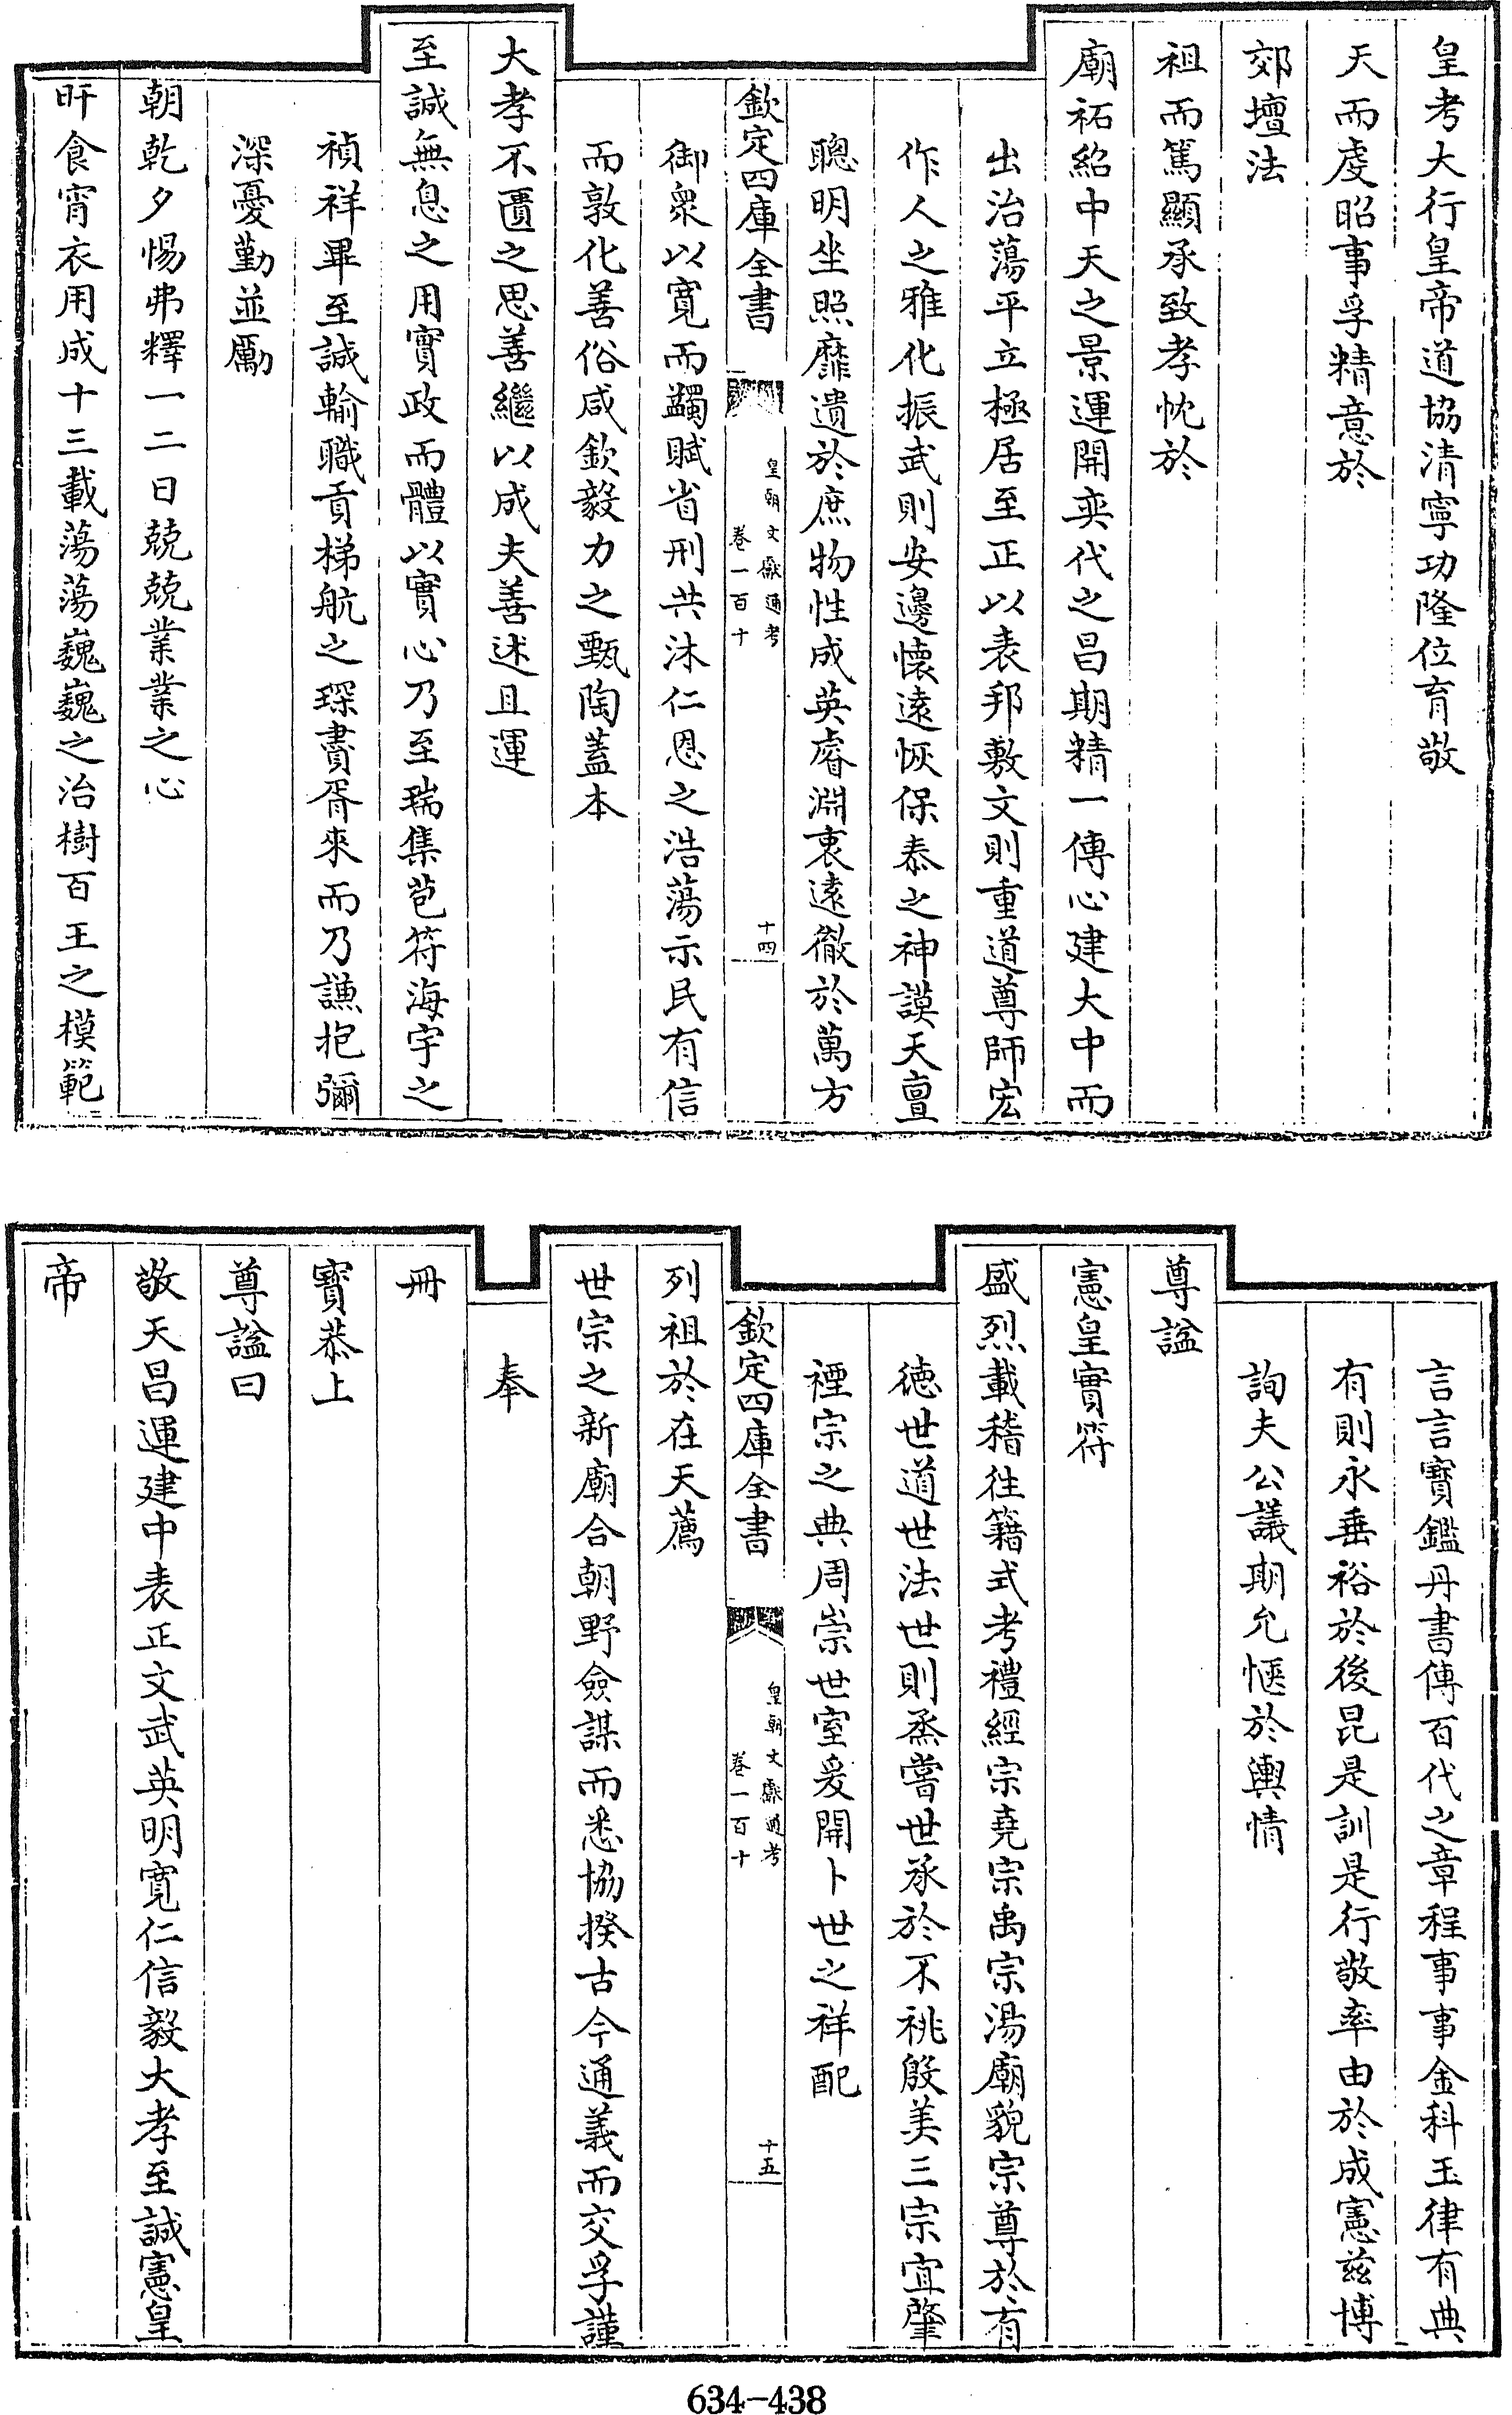 皇考大行皇帝道協清寧功隆位育敬
天而虔昭事孚精意於
郊壇法
祖而篤顯承致孝忱於
廟祏紹中天之景運開奕代之昌期精一傳心建大中而
出治蕩平立極居至正以表邦敷文則重道尊師宏
作人之雅化振武則安邊懷遠恢保泰之神謨天亶
聰明坐照靡遺於庶物性成英睿淵衷遠徹於萬方
欽定四庫全書
皇朝文獻通考
卷一百十
十四
御衆以寬而蠲賦省刑共沐仁恩之浩蕩示民有信
而敦化善俗咸欽毅力之甄陶蓋本
大孝不匱之思善繼以成夫善述且運
至誠無息之用實政而體以實心乃至瑞集苞符海宇之
禎祥畢至誠輸職貢梯航之琛賮胥來而乃謙抱彌
深憂勤並勵
朝乾夕惕弗釋一二日兢兢業業之心
旰食宵衣用成十三載蕩蕩巍巍之治樹百王之模範
言言寳鑑丹書傳百代之章程事事金科玉律有典
有則永垂裕於後昆是訓是行敬率由於成憲兹博
詢夫公議期允愜於輿情
尊諡
憲皇實符
盛烈載稽往籍式考禮經宗堯宗禹宗湯廟貌宗尊於有
徳世道世法世則烝嘗世承於不祧殷美三宗宜肇
禋宗之典周崇世室爰開卜世之祥配
欽定四庫全書
皇朝文獻通考
卷一百十
十五
列祖於在天薦
世宗之新廟合朝野僉謀而悉協揆古今通義而交孚謹
奉
冊
寳恭上
尊諡曰
敬天昌運建中表正文武英明寬仁信毅大孝至誠憲皇
帝
634-438